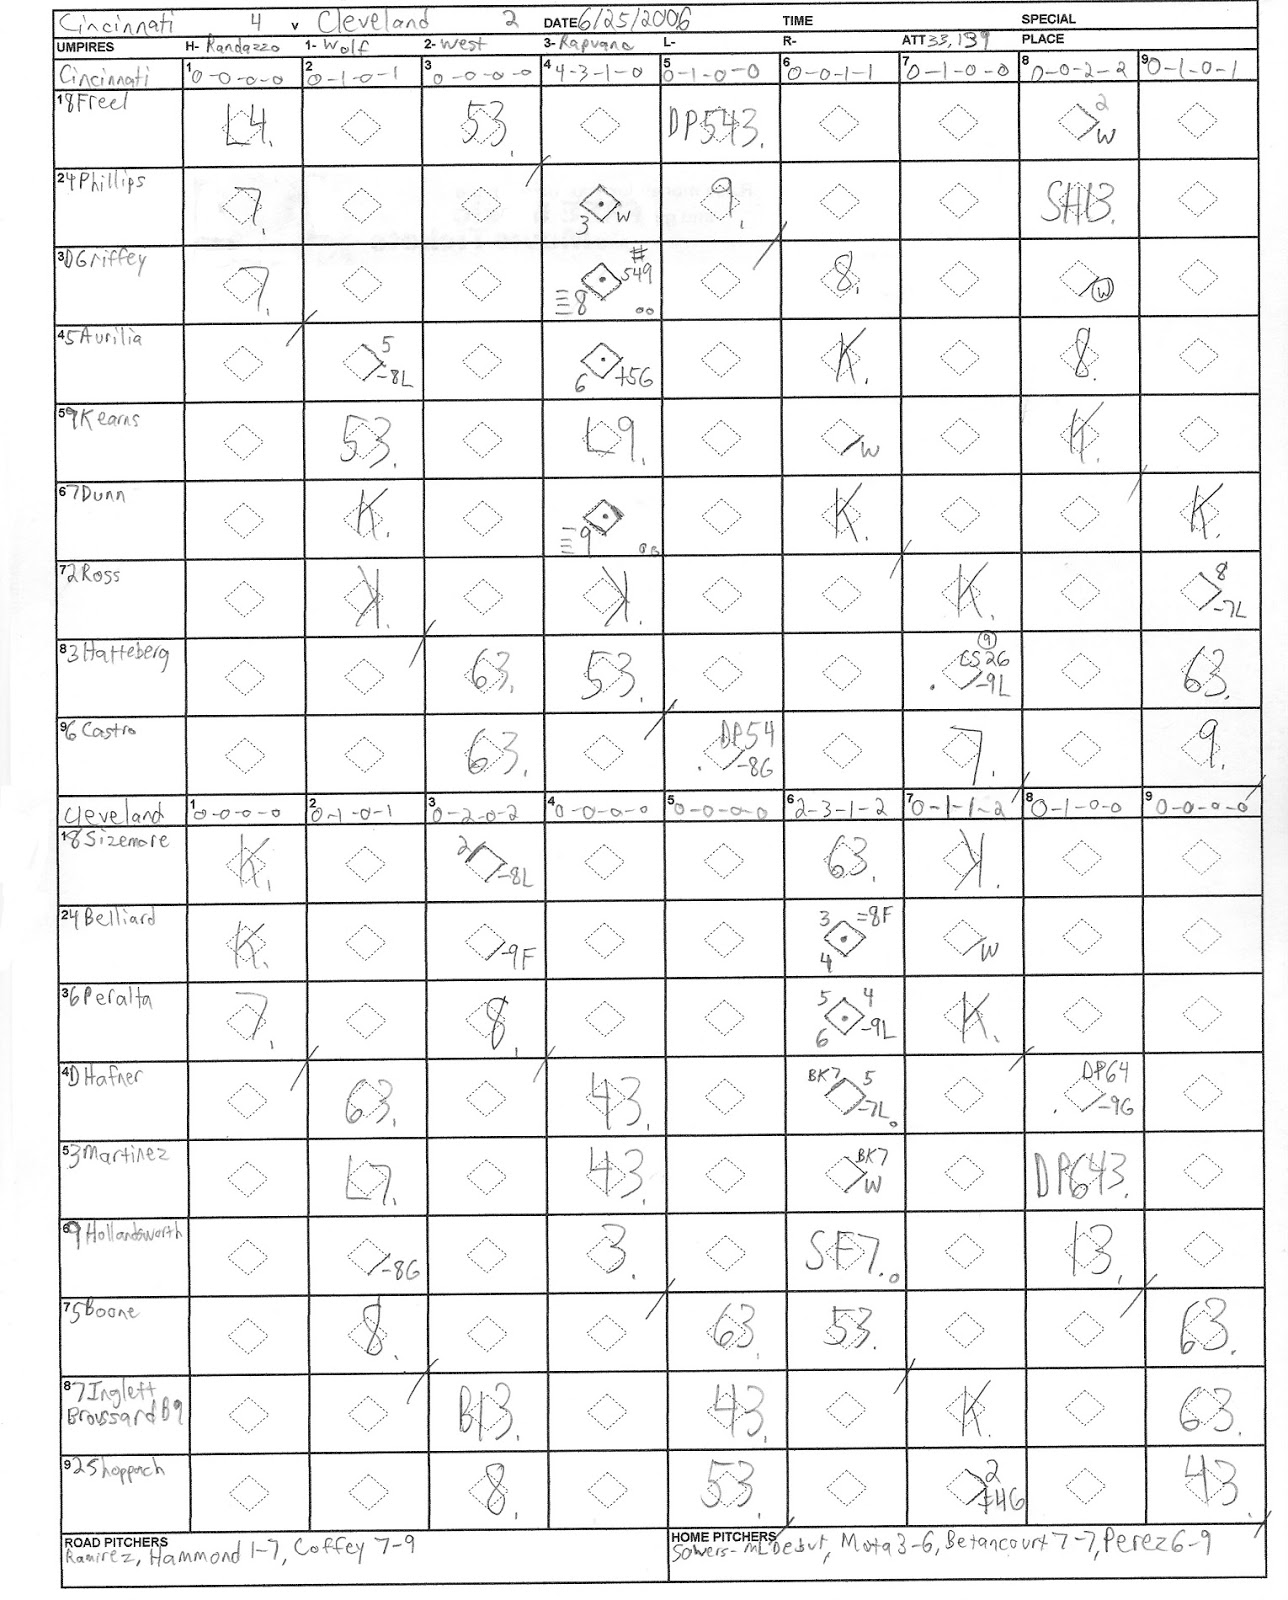 Cincinnati 4 v Cleveland 2 DATE 6/25/2006 TIME SPECIAL
UMPIRES H- Randazzo 1- Wolf 2- West 3- Rapuano L- R- ATT 33,139 PLACE
Cincinnati 1 0-0-0-0 2 0-1-0-1 3 0-0-0-0 4 4-3-1-0 5 0-1-0-0 6 0-0-1-1 7 0-1-0-0 8 0-0-2-2 9 0-1-0-1
1 8 Freel L4. 53. DP543. 2 W
2 4 Phillips 7. 3 W 9. SH13.
3 D Griffey 7. # 549 8 8. W
4 5 Aurilia 5 -8L 6 +5G K. 8.
5 9 Kearns 53. L9. W K.
6 7 Dunn K. 9 K. K.
7 2 Ross K. K. K. 8 -7L
8 3 Hatteberg 63. 53. 9 CS26 -9L 63.
9 6 Castro 63. DP54 -8G 7. 9.
Cleveland 1 0-0-0-0 2 0-1-0-1 3 0-2-0-2 4 0-0-0-0 5 0-0-0-0 6 2-3-1-2 7 0-1-1-2 8 0-1-0-0 9 0-0-0-0
1 8 Sizemore K. 2 -8L 63. K.
2 4 Belliard K. -9F 3 =8F 4 W
3 6 Peralta 7. 8. 5 4 -9L 6 K.
4 D Hafner 63. 43. BK7 5 -7L DP64 -9G
5 3 Martinez L7. 43. BK7 W DP643.
6 9 Hollandsworth -8G 3. SF7. 13.
7 5 Boone 8. 63. 53. 63.
8 7 Inglett B13. 43. K. 63.
Broussard B9
9 2 Shoppach 8. 53. 2 46 43.
ROAD PITCHERS HOME PITCHERS
Ramirez, Hammond 1-7, Coffey 7-9 Sowers- ML Debut, Mota 3-6, Betancourt 7-7, Perez 6-9